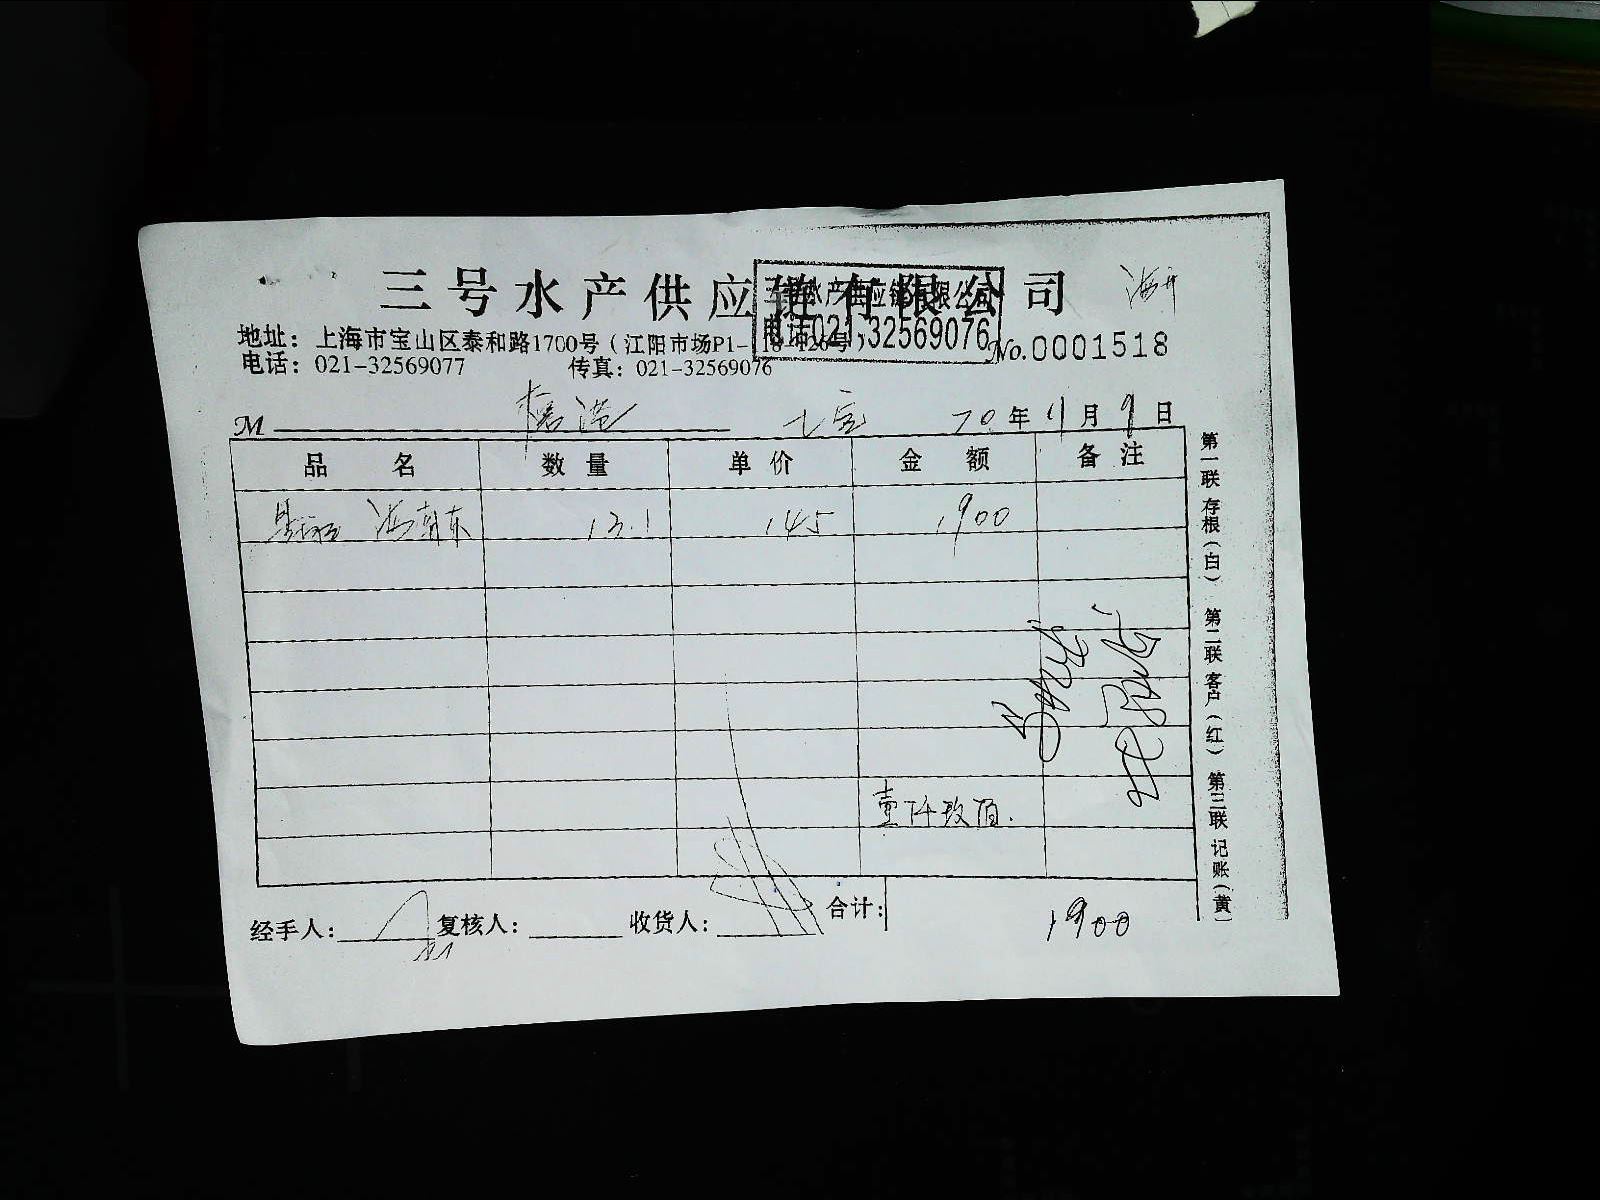 三号水产供应链有限公司
三号水产供应链有限公司
电话021,32569076
地址：上海市宝山区泰和路1700号（江阳市场P1-
No.0001518
电话：021-32569077 传真：021-32569076
M 七宝 20年11月9日
品名 数量 单价 金额 备注
13.1 145 1900
壹仟玖佰.
经手人： 复核人： 收货人： 合计： 1900
第一联 存根（白） 第二联 客户（红） 第三联 记账（黄）